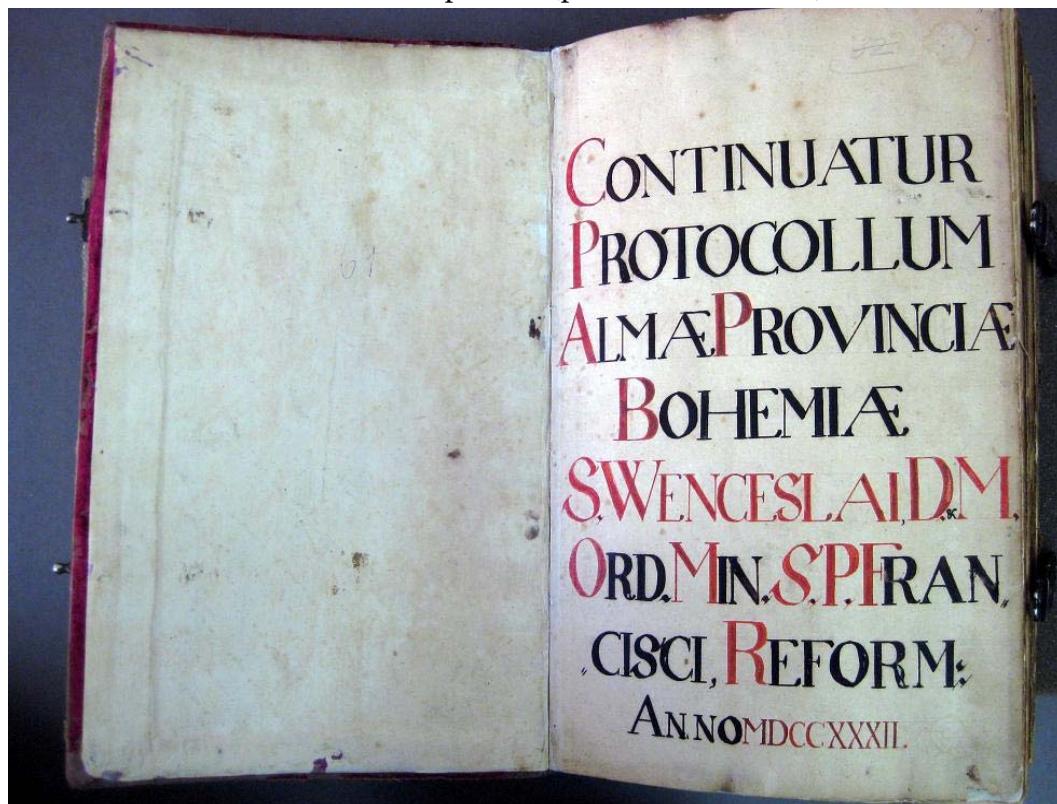 61
CONTINUATUR
PROTOCOLLUM
ALMÆ PROVINCIÆ
BOHEMIÆ
S. WENCESLAI, D. & M.
ORD. MIN. S. P. FRAN„
„CISCI, REFORM:
ANNO MDCCXXXII.